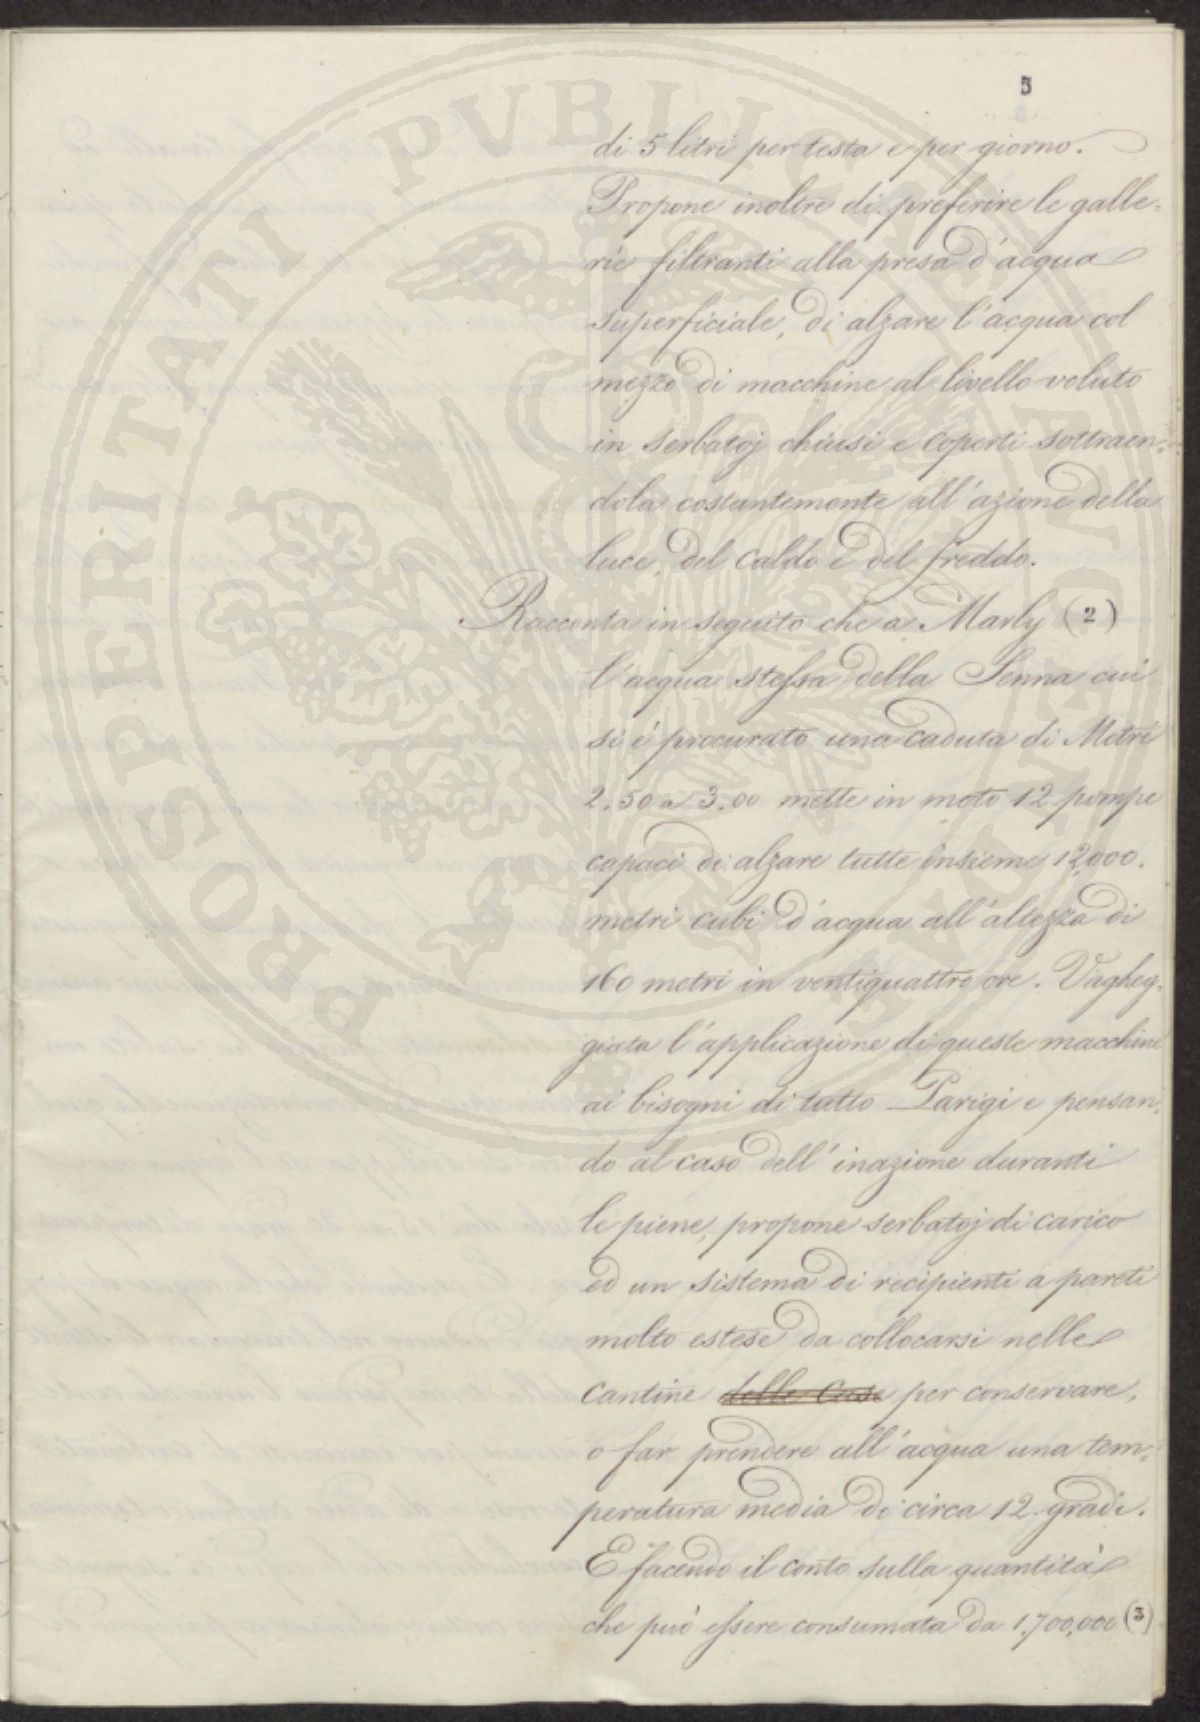 5
di 5 litri per testa e per giorno.
Propone inoltre di preferire le galle-
rie filtranti alla presa d'acqua
superficiale, di alzare l'acqua col
mezzo di macchine al livello voluto
in serbatoj chiusi e coperti sottraen-
dola costantemente all'azione della
luce, del caldo e del freddo.
Racconta in seguito che a Marly (2)
l'acqua stessa della Senna cui
si è procurato una caduta di Metri
2.50 a 3.00 mette in moto 12 pompe
capaci di alzare tutte insieme 12,000.
metri cubi d'acqua all'altezza di
160 metri in ventiquattro ore. Vagheg-
giata l'applicazione di queste macchine
ai bisogni di tutto Parigi e pensan-
do al caso dell'inazione duranti
le piene, propone serbatoj di carico
ed un sistema di recipienti a pareti
molto estese da collocarsi nelle
cantine delle Case per conservare,
o far prendere all'acqua una tem-
peratura media di circa 12 gradi.
E facendo il conto sulla quantità
che può essere consumata da 1,700,000 (3)
PROSPERITATI PVBLICAE